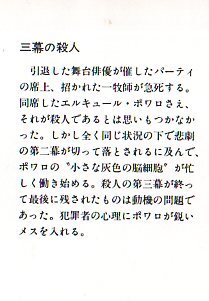 三幕の殺人
引退した舞台俳優が催したパーティ
の席上、招かれた一牧師が急死する。
同席したエルキュール・ポワロさえ、
それが殺人であるとは思いもつかなか
った。しかし全く同じ状況の下で悲劇
の第二幕が切って落とされるに及んで、
ポワロの〝小さな灰色の脳細胞〟が忙
しく働き始める。殺人の第三幕が終っ
て最後に残されたものは動機の問題で
あった。犯罪者の心理にポワロが鋭い
メスを入れる。